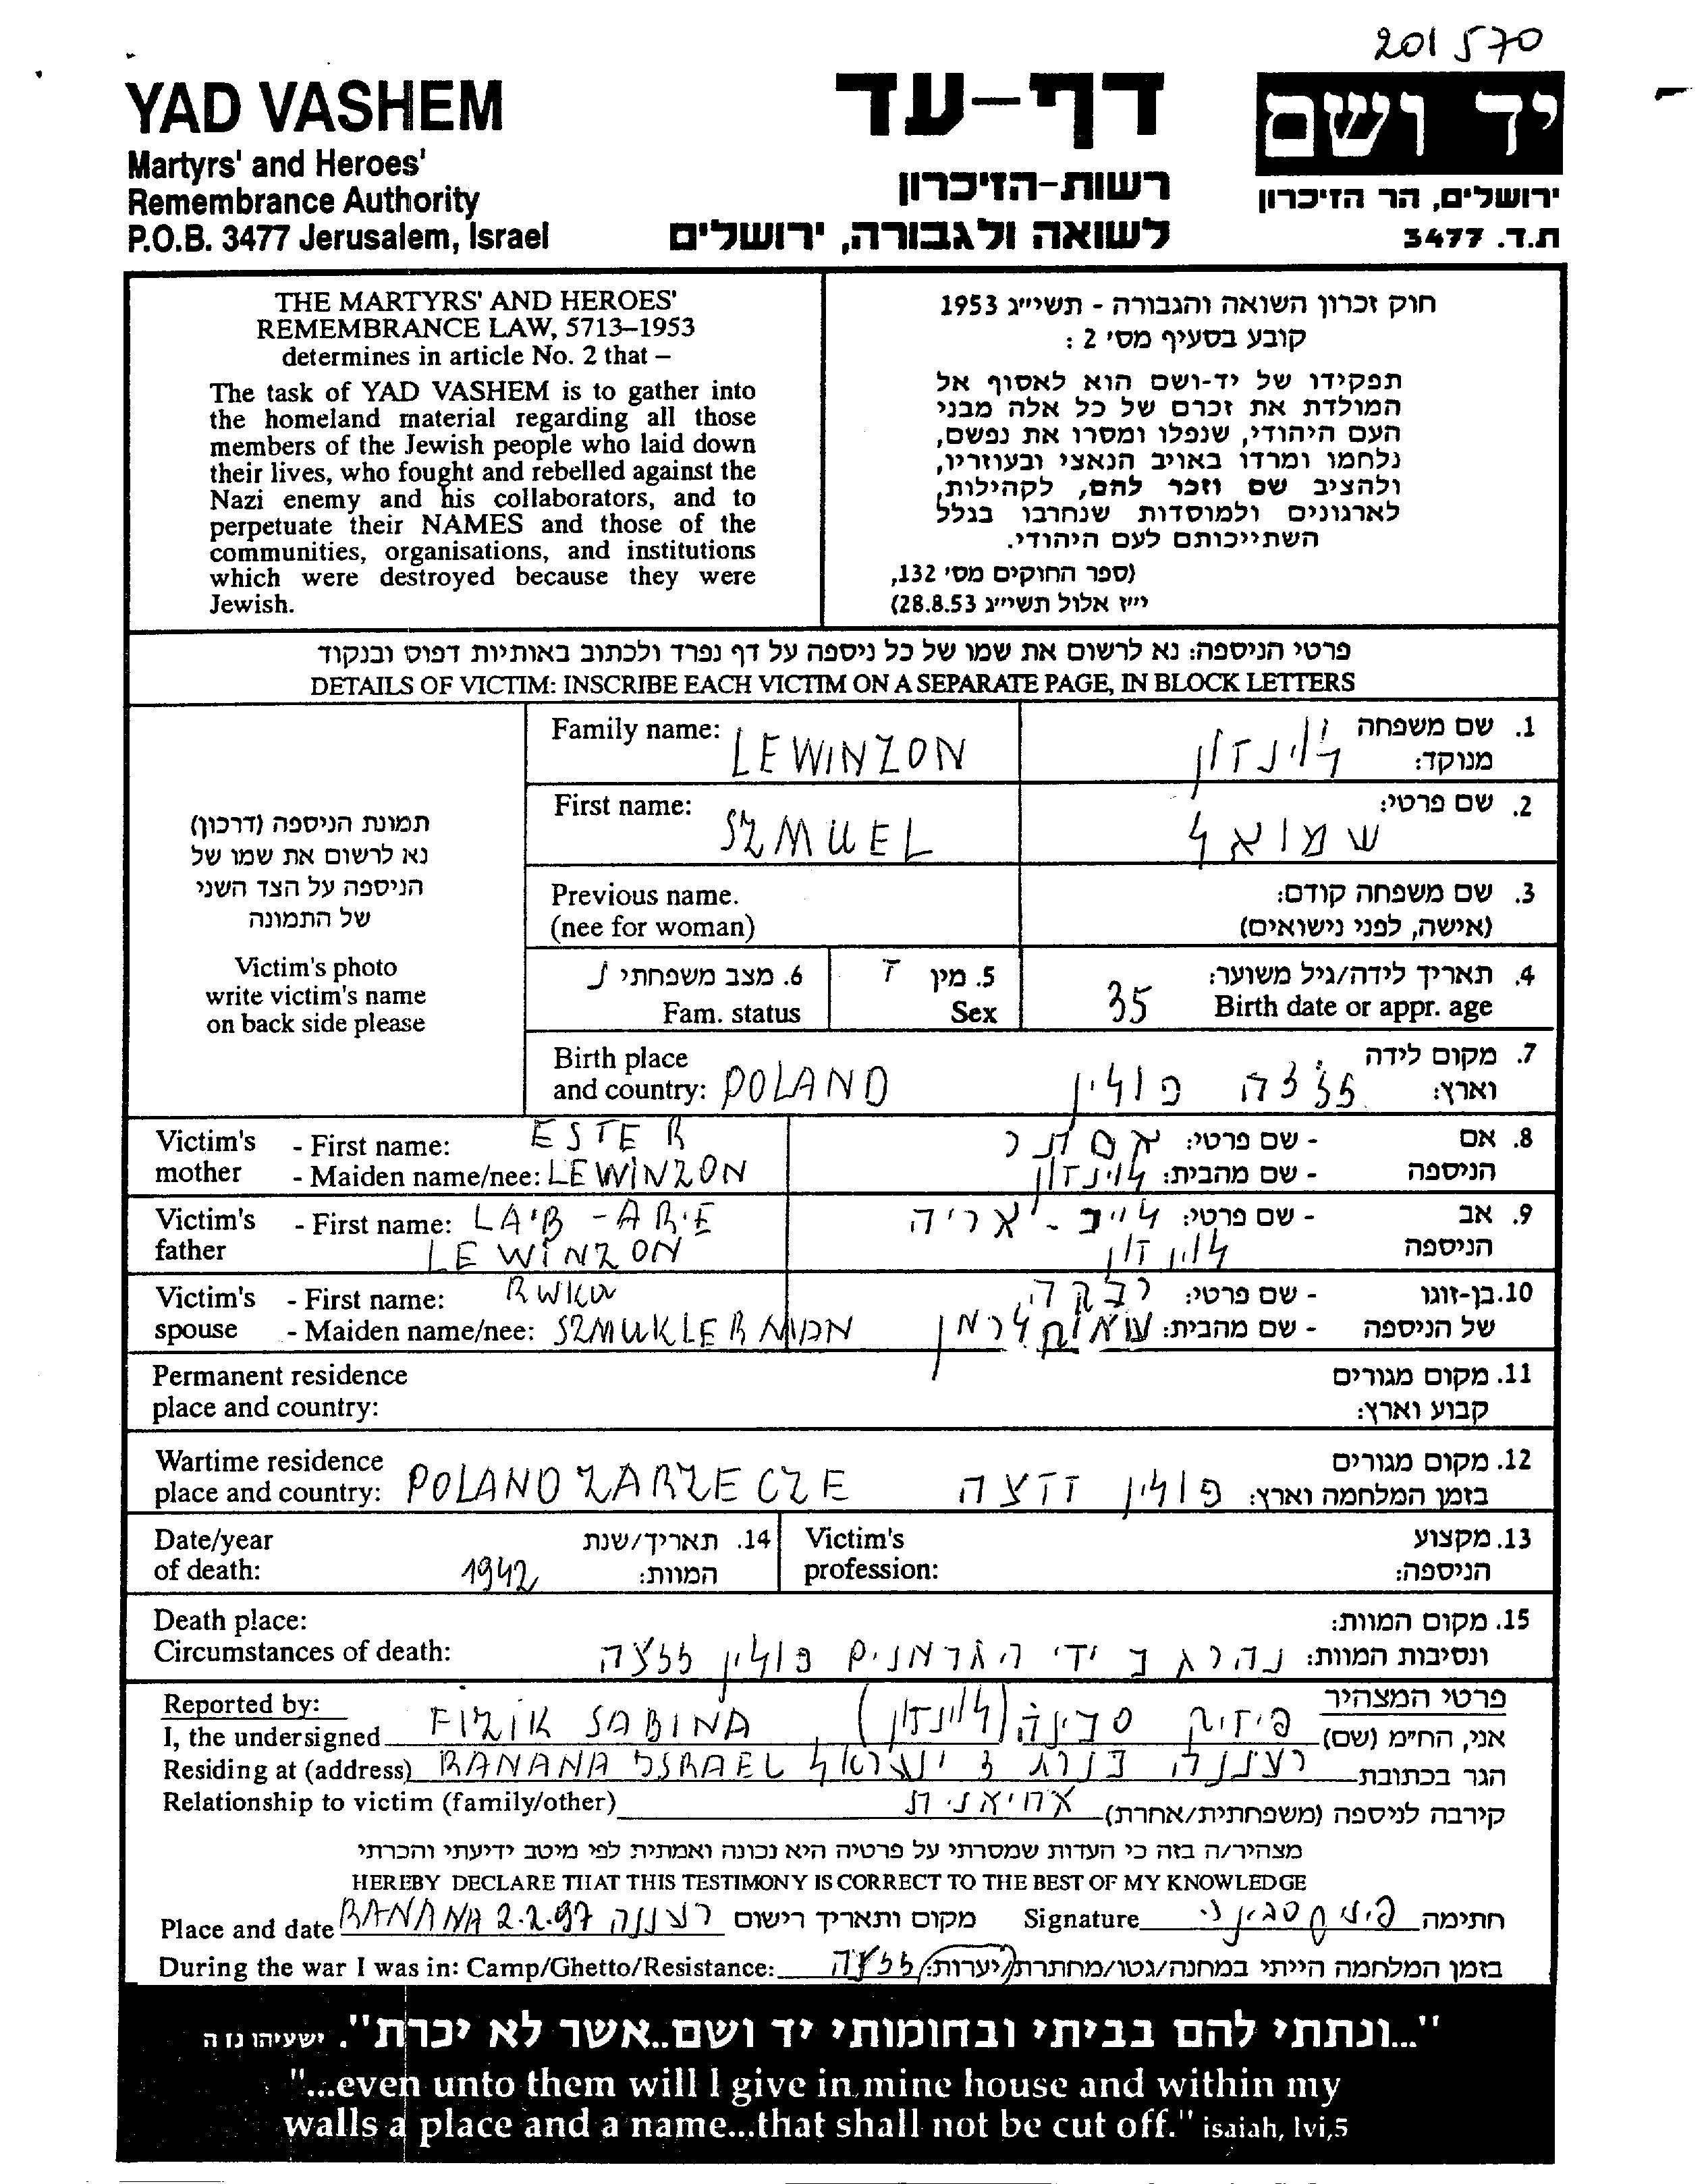 201 570
YAD VASHEM
Martyrs' and Heroes'
Remembrance Authority
P.O.B. 3477 Jerusalem, Israel
דף-עד
רשות-הזיכרון
לשואה ולגבורה, ירושלים
יד ושם
ירושלים, הר הזיכרון
ת.ד. 3477
THE MARTYRS' AND HEROES'
REMEMBRANCE LAW, 5713–1953
determines in article No. 2 that –
The task of YAD VASHEM is to gather into
the homeland material regarding all those
members of the Jewish people who laid down
their lives, who fought and rebelled against the
Nazi enemy and his collaborators, and to
perpetuate their NAMES and those of the
communities, organisations, and institutions
which were destroyed because they were
Jewish.
חוק זכרון השואה והגבורה - תשי״ג 1953
קובע בסעיף מס' 2 :
תפקידו של יד-ושם הוא לאסוף אל
המולדת את זכרם של כל אלה מבני
העם היהודי, שנפלו ומסרו את נפשם,
נלחמו ומרדו באויב הנאצי ובעוזריו,
ולהציב שם וזכר להם, לקהילות,
לארגונים ולמוסדות שנחרבו בגלל
השתייכותם לעם היהודי.
(ספר החוקים מס' 132,
י״ז אלול תשי״ג 28.8.53)
פרטי הניספה: נא לרשום את שמו של כל ניספה על דף נפרד ולכתוב באותיות דפוס ובנקוד
DETAILS OF VICTIM: INSCRIBE EACH VICTIM ON A SEPARATE PAGE, IN BLOCK LETTERS
תמונת הניספה (דרכון)
נא לרשום את שמו של
הניספה על הצד השני
של התמונה
Victim's photo
write victim's name
on back side please
Family name: LEWINZON
1. שם משפחה מנוקד: לוינזון
First name: SZMUEL
2. שם פרטי: שמואל
Previous name.
(nee for woman)
3. שם משפחה קודם:
(אישה, לפני נישואים)
4. תאריך לידה/גיל משוער:
Birth date or appr. age 35
5. מין ז
Sex
6. מצב משפחתי נ
Fam. status
Birth place
and country: POLAND
7. מקום לידה
וארץ: פולין
Victim's mother - First name: ESTER
- Maiden name/nee: LEWINZON
8. אם הניספה - שם פרטי: אסתר
- שם מהבית: לוינזון
Victim's father - First name: LAJB - ARIE
LEWINZON
9. אב הניספה - שם פרטי: לייב - אריה
לוינזון
Victim's spouse - First name: RWKA
- Maiden name/nee: SZMUKLERMAN
10. בן-זוגו של הניספה - שם פרטי: רבקה
- שם מהבית:
Permanent residence
place and country:
11. מקום מגורים
קבוע וארץ:
Wartime residence
place and country: POLAND ZARZECZE
12. מקום מגורים
בזמן המלחמה וארץ: פולין
Date/year
of death: 1942
14. תאריך/שנת
המוות:
Victim's
profession:
13. מקצוע
הניספה:
Death place:
Circumstances of death:
15. מקום המוות:
ונסיבות המוות: נהרג ב ידי הגרמנים פולין
Reported by:
פרטי המצהיר
I, the undersigned FIZIK SABINA
אני, הח״מ (שם) פיזיק סבינה (לוינזון)
Residing at (address) RANANA ISRAEL
הגר בכתובת רעננה ישראל
Relationship to victim (family/other)
קירבה לניספה (משפחתית/אחרת) אחיאנית
מצהיר/ה בזה כי העדות שמסרתי על פרטיה היא נכונה ואמתית לפי מיטב ידיעתי והכרתי
HEREBY DECLARE THAT THIS TESTIMONY IS CORRECT TO THE BEST OF MY KNOWLEDGE
Place and date RANANA 2.2.97 רעננה מקום ותאריך רישום
Signature חתימה
During the war I was in: Camp/Ghetto/Resistance:
בזמן המלחמה הייתי במחנה/גטו/מחתרת/יערות:
"...ונתתי להם בביתי ובחומותי יד ושם..אשר לא יכרת". ישעיהו נז ה
"...even unto them will I give in mine house and within my
walls a place and a name...that shall not be cut off." isaiah, lvi,5